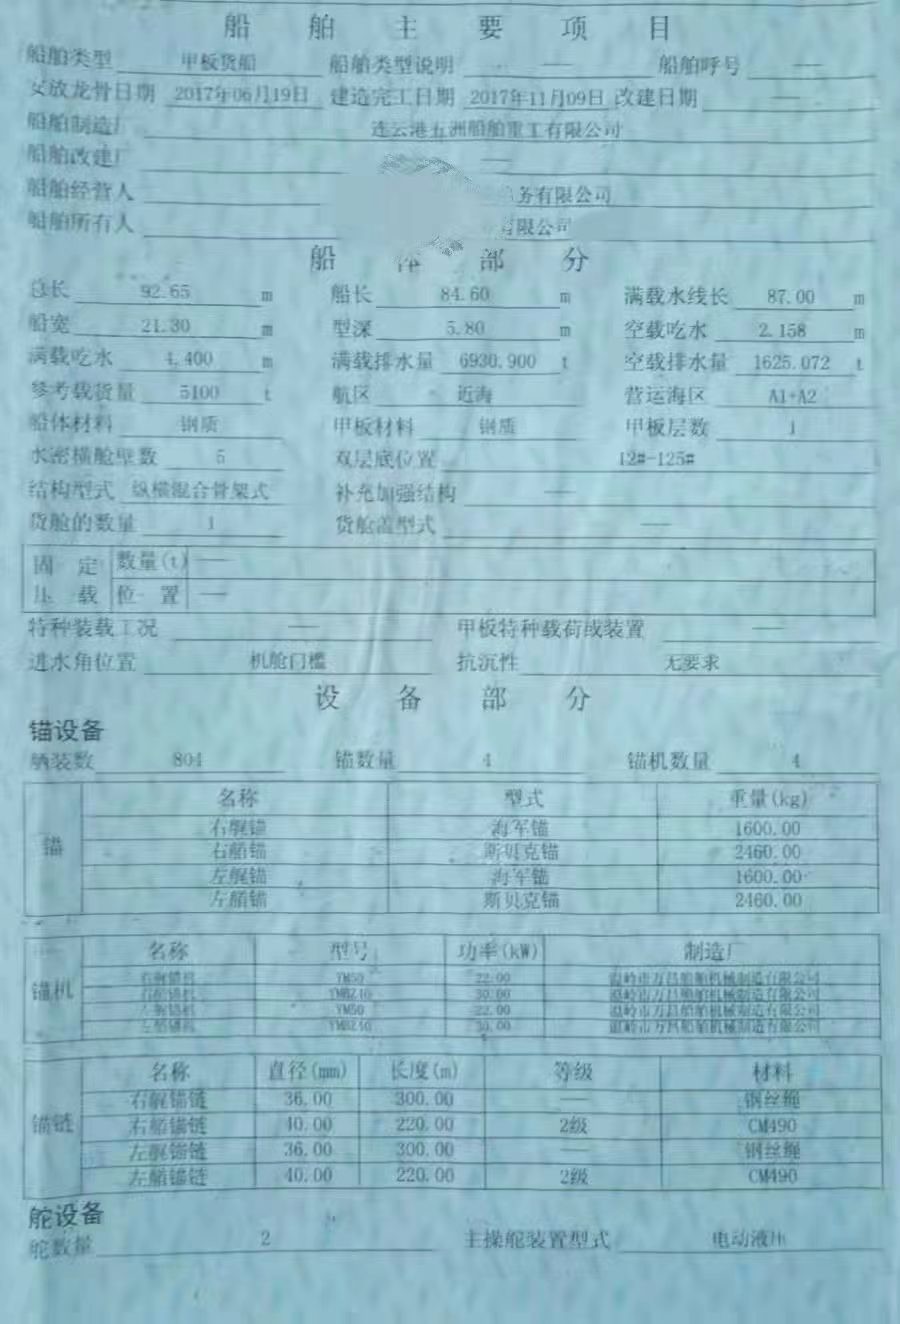 船舶主要项目
船舶类型 甲板货船 船舶类型说明 — 船舶呼号 —
安放龙骨日期 2017年06月19日 建造完工日期 2017年11月09日 改建日期 —
船舶制造厂 连云港五洲船舶重工有限公司
船舶改建厂 —
船舶经营人 务有限公司
船舶所有人 有限公司
船体部分
总长 92.65 m 船长 84.60 m 满载水线长 87.00 m
船宽 21.30 m 型深 5.80 m 空载吃水 2.158 m
满载吃水 4.400 m 满载排水量 6930.900 t 空载排水量 1625.072 t
参考载货量 5100 t 航区 近海 营运海区 A1+A2
船体材料 钢质 甲板材料 钢质 甲板层数 1
水密横舱壁数 5 双层底位置 12#-125#
结构型式 纵横混合骨架式 补充加强结构 —
货舱的数量 1 货舱盖型式 —
固定压载 数量(t) —
位置 —
特种装载工况 — 甲板特种载荷或装置 —
进水角位置 机舱门槛 抗沉性 无要求
设备部分
锚设备
舾装数 804 锚数量 4 锚机数量 4
锚 名称 型式 重量(kg)
右艉锚 海军锚 1600.00
右艏锚 斯贝克锚 2460.00
左艉锚 海军锚 1600.00
左艏锚 斯贝克锚 2460.00
锚机 名称 型号 功率(kW) 制造厂
右艉锚机 YM50 22.00 温岭市万昌船舶机械制造有限公司
右艏锚机 30.00 温岭市万昌船舶机械制造有限公司
左艉锚机 YM50 22.00 温岭市万昌船舶机械制造有限公司
左艏锚机 30.00 温岭市万昌船舶机械制造有限公司
锚链 名称 直径(mm) 长度(m) 等级 材料
右艉锚链 36.00 300.00 — 钢丝绳
右艏锚链 40.00 220.00 2级 CM490
左艉锚链 36.00 300.00 — 钢丝绳
左艏锚链 40.00 220.00 2级 CM490
舵设备
舵数量 2 主操舵装置型式 电动液压